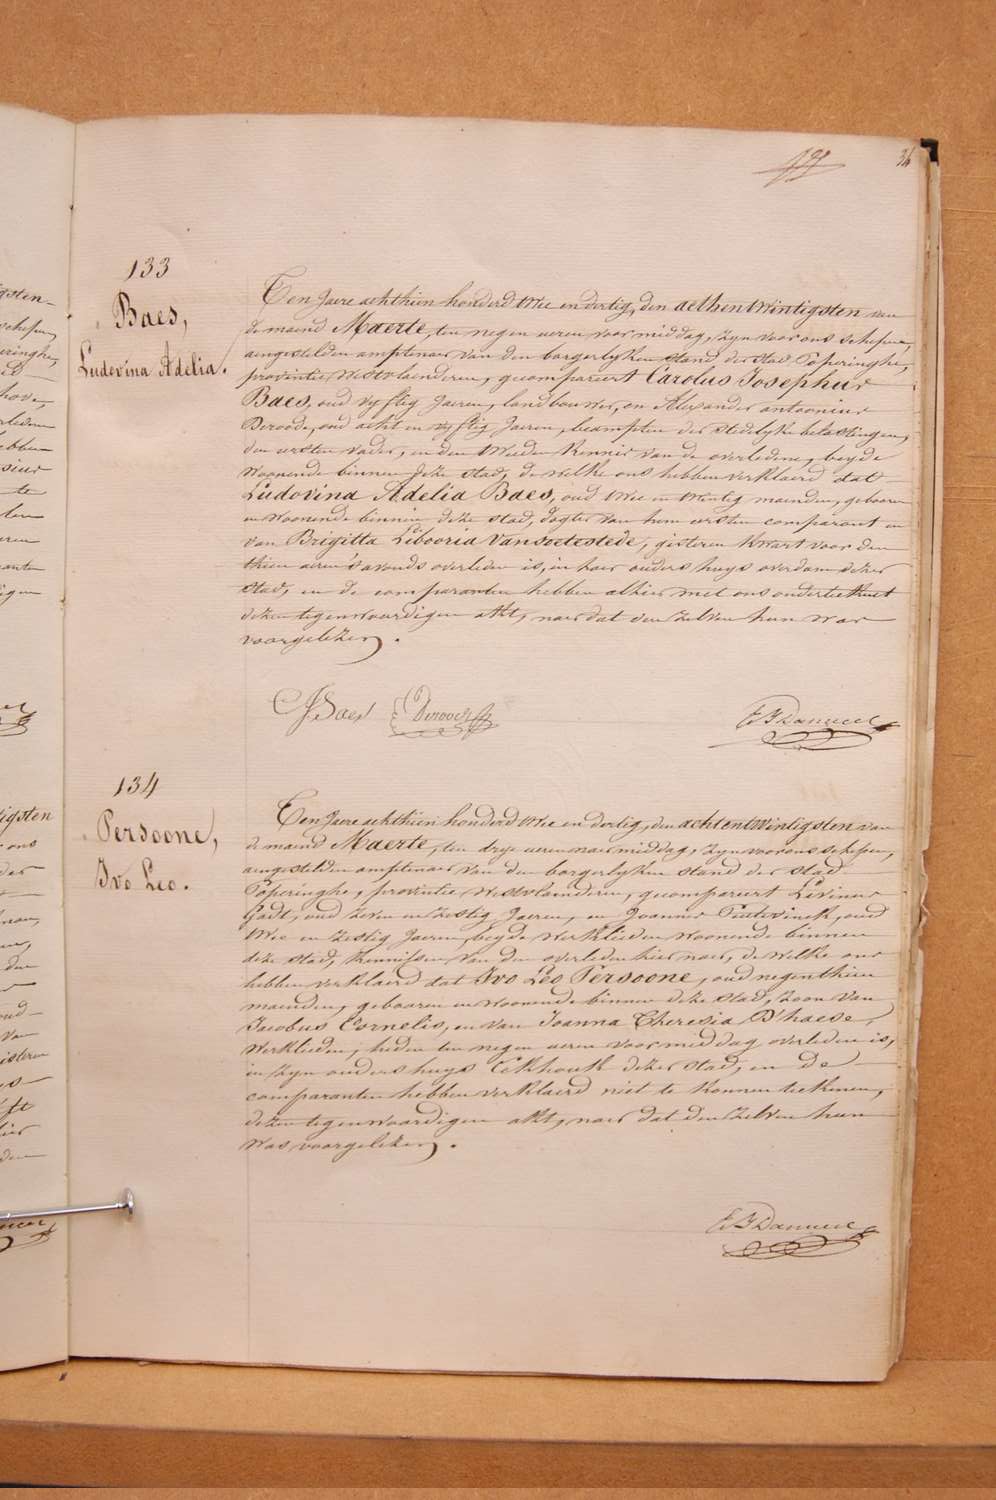 34
133
Baes,
Ludovina Adelia.
Ten Jaere achthien honderd twee en dertig, den achtentwintigsten van
de maend Maerte, ten negen ueren voormiddag, zyn voor ons schepen,
aengestelden amptenaer van den borgerlyken stand der stad Poperinghe,
provintie Westvlaenderen, gecompareert Carolus Josephus
Baes, oud vyftig Jaeren, landbouwer, en Alexander antoonius
Deroode, oud acht en vyftig Jaeren, beampten der stedelyke belastingen,
den eersten vader, en den tweeden Kennis van de overledene, beyde
woonende binnen deze stad, de welke ons hebben verklaerd dat
Ludovina Adelia Baes, oud twee en twintig maenden, gebooren
en woonende binnen deze stad, dogter van hem eersten comparant en
van Brigitta Libooria Vansoetestede, gisteren kwart voor den
thien ueren s'avonds overleden is, in haer ouders huys overdam dezer
stad, en de comparanten hebben alhier met ons onderteekent
dezen tegenwoordigen akt, naer dat den zelven hun was
voorgelezen.
CJBaes Deroode
134
Persoone,
Ivo Leo.
Ten Jaere achthien honderd twee en dertig, den achtentwintigsten van
de maend Maerte, ten dryé ueren naermiddag, zyn voor ons schepen,
aengestelden amptenaer van den borgerlyken stand der stad
Poperinghe, provintie Westvlaenderen, gecompareert Livinus
Gadt, oud zeven en zestig Jaeren, en Joannes oud
twee en zestig Jaeren, beyde werklieden woonende binnen
deze stad, kennissen van den overleden hier naer, de welke ons
hebben verklaerd dat Ivo Leo Persoone, oud negenthien
maenden, gebooren en woonende binnen deze stad, zoon van
Jacobus Cornelis, en van Joanna Theresia D'haese,
werklieden, heden ten negen ueren voormiddag overleden is,
in zyn ouders huys Eekhoutk dezer stad, en de
comparanten hebben verklaerd niet te konnen teekenen,
dezen tegenwoordigen akt, naer dat den zelven hun
was voorgelezen.